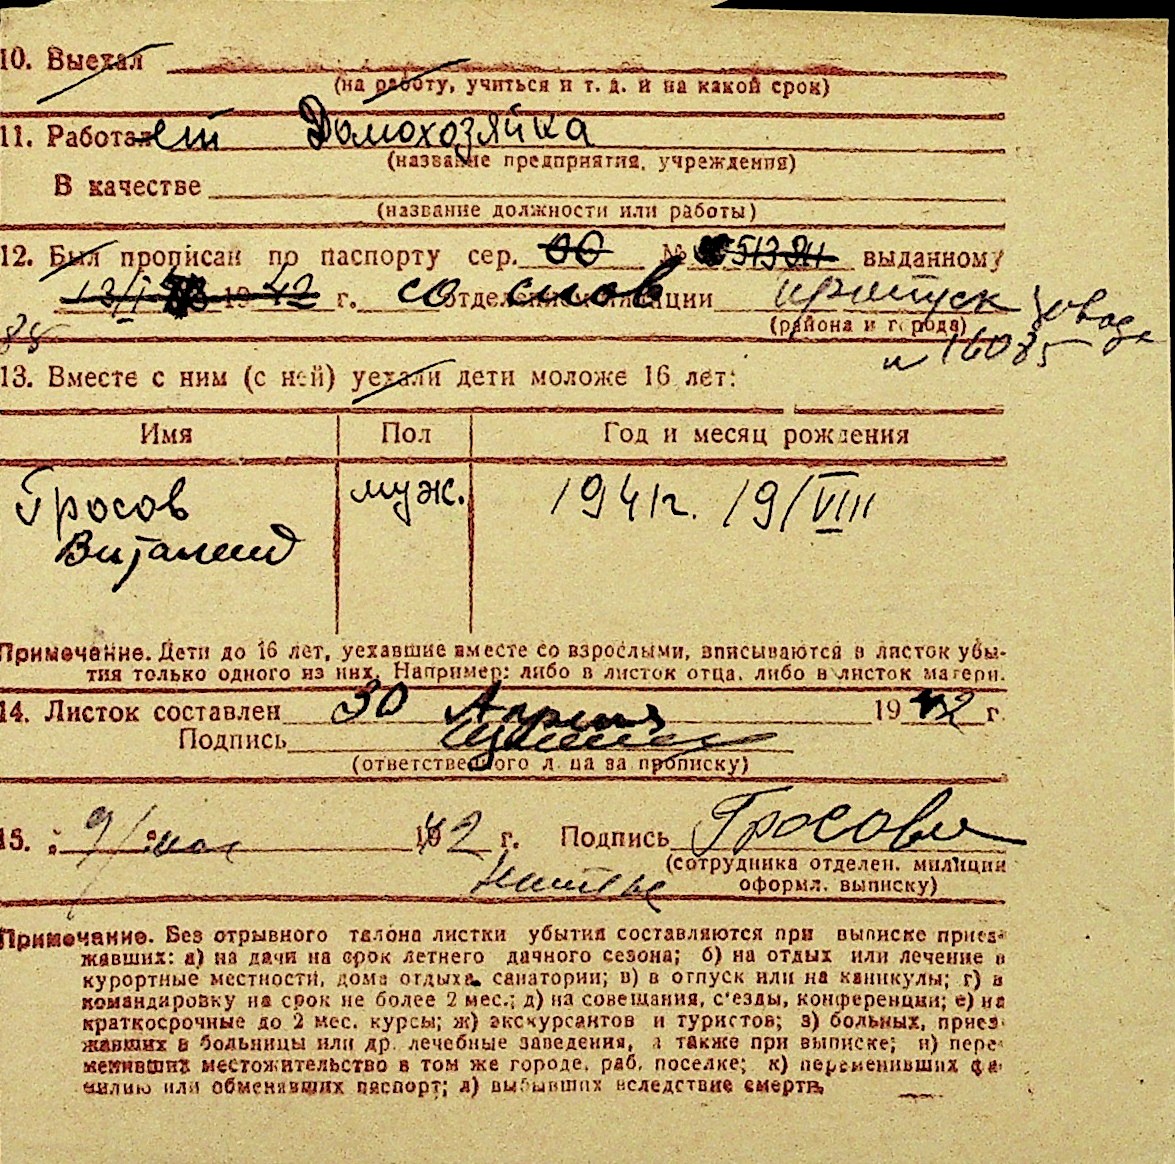 10. Выехал
(на работу, учиться и т. д. и на какой срок)
11. Работает Домохозяйка
(название предприятия, учреждения)
В качестве
(название должности или работы)
12. Был прописан по паспорту сер. № выданному
19 42 г. со слов отделением милиции пропуск завода
(района и города)
№ 16085
13. Вместе с ним (с ней) уехали дети моложе 16 лет:
Имя Пол Год и месяц рождения
Гросов муж. 1941г. 19/VIII
Виталий
Примечание. Дети до 16 лет, уехавшие вместе со взрослыми, вписываются в листок убы-
тия только одного из них. Например: либо в листок отца, либо в листок матери.
14. Листок составлен 30 Апреля 1942 г.
Подпись
(ответственного лица за прописку)
15. 9/мая 1942 г. Подпись Гросова
(сотрудника отделен. милиции
оформл. выписку)
Примечание. Без отрывного талона листки убытия составляются при выписке приез-
жавших: а) на дачи на срок летнего дачного сезона; б) на отдых или лечение в
курортные местности, дома отдыха, санатории; в) в отпуск или на каникулы; г) в
командировку на срок не более 2 мес.; д) на совещания, с'езды, конференции; е) на
краткосрочные до 2 мес. курсы; ж) экскурсантов и туристов; з) больных, приез-
жавших в больницы или др. лечебные заведения, а также при выписке; и) пере-
менивших местожительство в том же городе, раб. поселке; к) переменивших фа-
милию или обменявших паспорт; л) выбывших вследствие смерти,